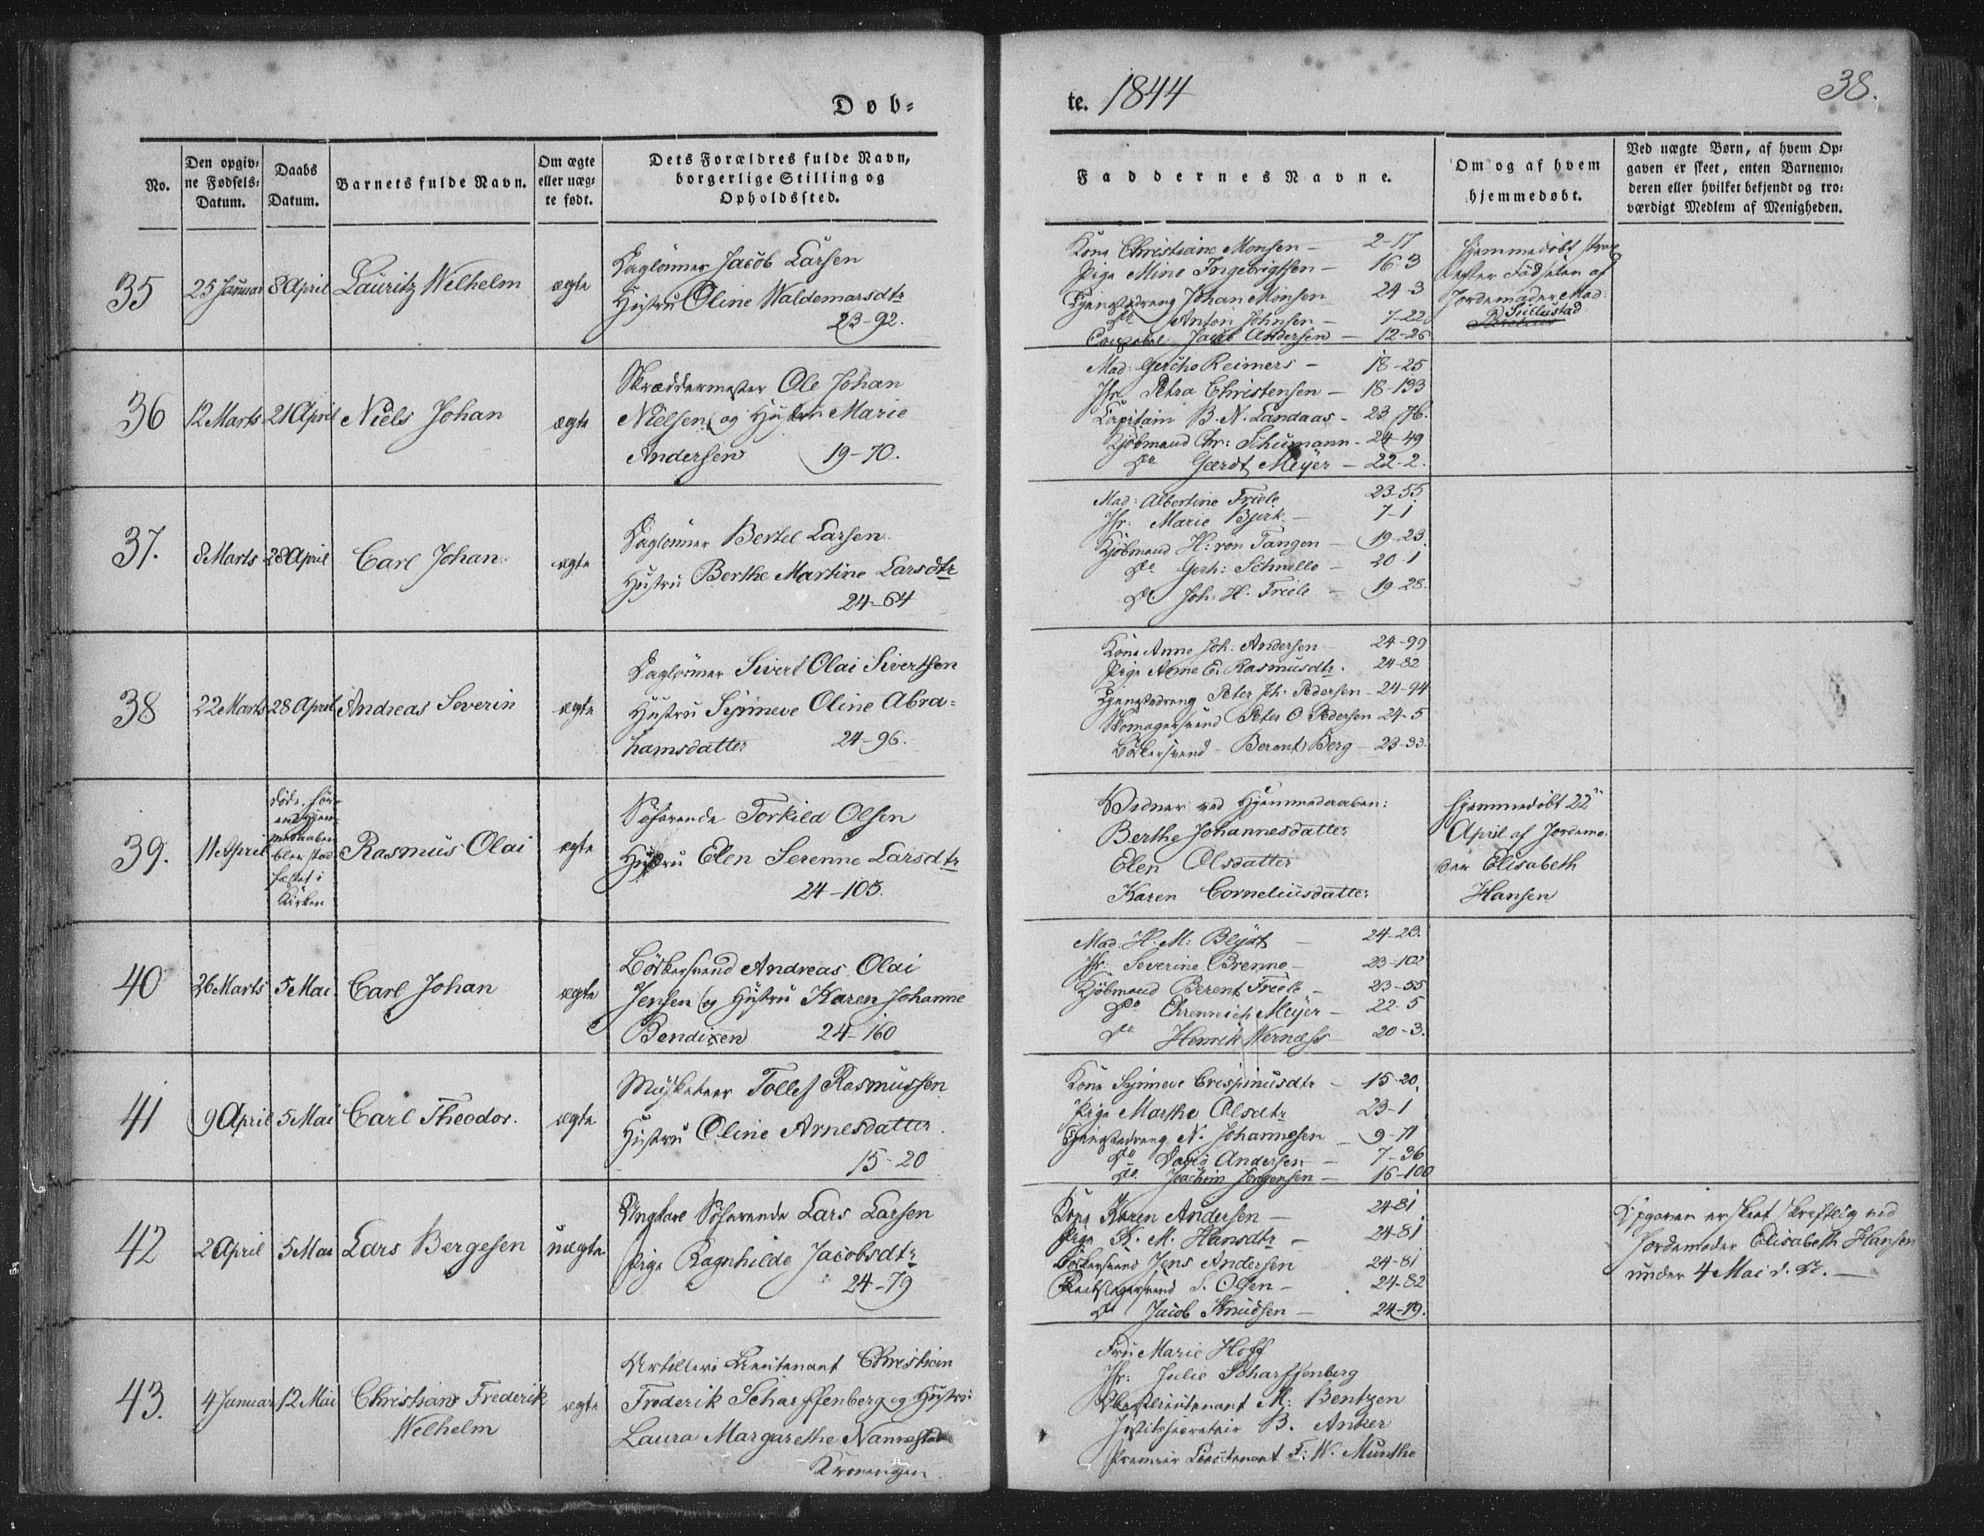 Døb=
te. 1844
38.
No.
Den opgiv=
ne Fødsels=
Datum.
Daabs
Datum.
Barnets fulde Navn.
Om ægte
eller uæg=
te født.
Dets Forældres fulde Navn,
borgerlige Stilling og
Opholdssted.
Faddernes Navne.
Om og af hvem
hjemmedøbt.
Ved uægte Børn, af hvem Op=
gaven er skeet, enten Barnemo=
deren eller hvilket bekjendt og tro=
værdigt Medlem af Menigheden.
35
25 Januar
8 April
Lauritz Wilhelm
ægte
Daglønner Jacob Larsen
Hustru Oline Waldemarsdtr
23-92.
Kone Christiane Monsen – 2-17
Pige Mine Ingebrigtsen – 16-3
Tjenestedreng Johan Monsen 24-3
Do Anton Johnsen – 7-22
Jacob Andersen – 12-26
Hjemmedøbt strax
efter Fødselen af
Jordemoder Mad:
36
12 Marts
21 April
Niels Johan
ægte
Skræddermester Ole Johan
Nielsen og Hustru Marie
Andersen 19-70.
Mad: Gercho Reimers – 18-25
Jfr. Petra Christensen – 18-133
Capitain B. N. Landaas – 23-76.
Kjøbmand Chr: Schumann – 24-49
Do Gerdt Meyer – 22-2.
37.
8 Marts
28 April
Carl Johan.
ægte
Daglønner Bertel Larsen
Hustru Berthe Martine Larsdtr
24-64
Mad: Albertine Friele 23-55
Jfr: Marie Bjerk – 7-1
Kjøbmand H: von Tangen – 19-23.
Do Gerh: Schnelle – 20-1
Do Joh. H. Friele – 19-28.
38
22 Marts
28 April
Andreas Severin
ægte
Daglønner Sivert Olai Sivertsen
Hustru Synneve Oline Abra=
hamsdatter 24-96.
Kone Anne Joh: Andersen 24-99
Pige Anne E. Rasmusdtr. 24-82
Tjenestedreng Peter Joh. Pedersen – 24-94
Skomagersvend Peter O Pedersen 24-5
Bødkersvend – Berent Berg – 23-33.
39.
11 April
døde, før
end Hjem=
medaaben
blev stad=
fæstet i
Kirken
Rasmus Olai
ægte
Søfarende Torkild Olsen
Hustru Elen Serenne Larsdtr
24-105.
Vidner ved Hjemmedaaben:
Berthe Johannesdatter
Elen Olsdatter
Karen Corneliusdatter
Hjemmedøbt 22n
April af Jordemo=
der Elisabeth
Hansen
40
26 Marts
5 Mai
Carl Johan
ægte
Bødkersvend Andreas Olai
Jensen og Hustru Karen Johanne
Bendixen 24-160
Mad. H. M. Blydt – 24-28.
Jfr. Severine Brenne – 23-102
Kjøbmand Berent Friele – 23-55
Do Ehrenreich Meyer – 22-5
Do Henrik Wernæss 20-3.
41
9 April
5 Mai
Carl Theodor.
ægte
Musketeer Tollef Rasmussen
Hustru Oline Arnesdatter.
15-20
Kone Synneve Crispinusdtr – 15-20.
Pige Marthe Olsdtr 23-1
Tjenestedreng N. Johannesen – 9-71
Do David Andersen – 7-36
Do. Joachim Jørgensen – 16-100
42
2 April
5 Mai
Lars Bergesen
uægte
Ungkarl Søfarende Lars Larsen
Pige Ragnhilde Jacobsdtr
24-79
Kone Karen Andersen – 24-81
Pige K. M. Hansdtr – 24-81
Bødkersvend Jens Andersen 24-81
Reebslagersvend S. Olsen – 24-82
Do Jacob Knudsen – 24-79.
Opgaven er skeet skriftlig ved
Jordemoder Elisabeth Hansen
under 4 Mai d. A. –
43.
4 Januar
12 Mai
Christian Frederik
Wilhelm
ægte
Artilleri Lieutenant Christian
Frederik Scharffenberg og Hustru
Laura Margarethe
Fru Marie Hoff
Jfr: Julie Scharffenberg
Oberstlieutenant M: Bentzen
B. Anker
Premier Lieutenant F. W. Munthe